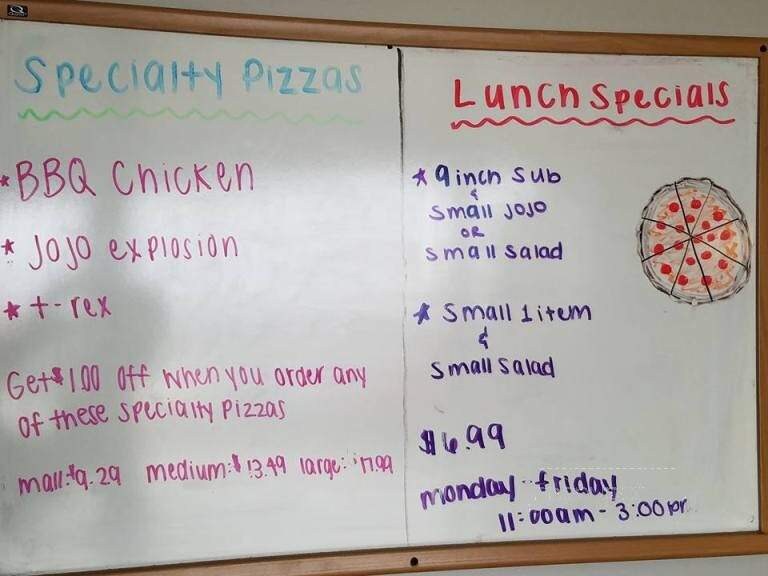 Specialty Pizzas
* BBQ Chicken
* Jojo explosion
* t-rex
Get $1.00 off when you order any
of these specialty pizzas
mall: $9.29 medium: $13.49 large: 17.99
Lunch Specials
* 9 inch sub
&
small jojo
OR
small salad
* small 1 item
&
small salad
$6.99
monday - friday
11:00am - 3:00pm